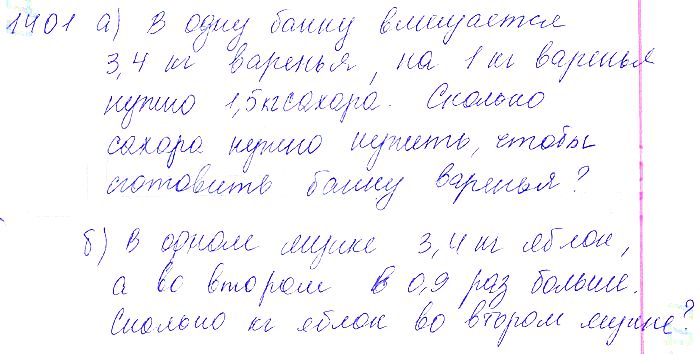 1401 а) В одну банку вмещается
3,4 кг варенья, на 1 кг варенья
нужно 1,5кг сахара. Сколько
сахара нужно купить, чтобы
готовить банку варенья?
б) В одном ящике 3,4 кг яблок,
а во втором в 0,9 раз больше.
Сколько кг яблок во втором ящике?